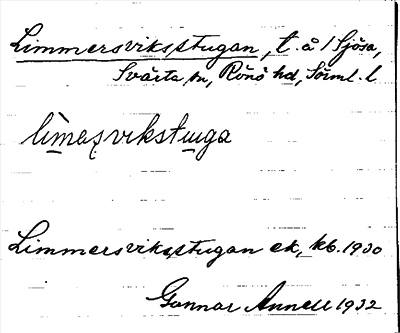 Limmersvikstugan, t. å / Sjösa,
Svärta sn, Rönö hd, Sörml. l
lìmạṣvikstuga
Limmersvikstugan ek, kb. 1930
Gunnar Annell 1932